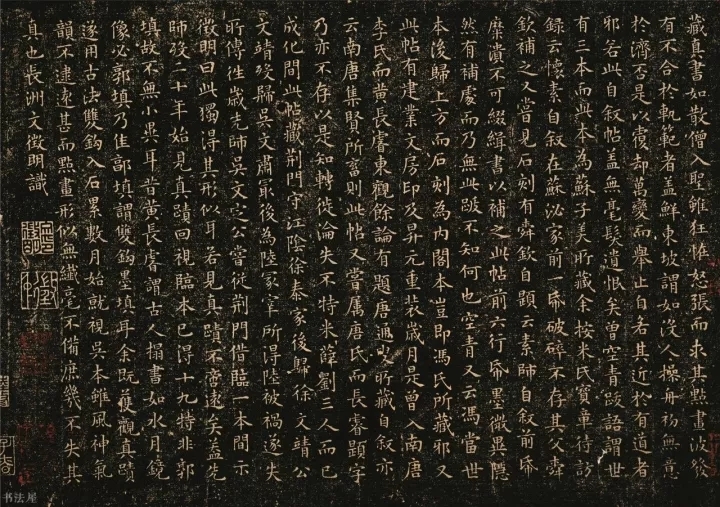 藏真書如散僧入聖雖狂怪怒張而求其點畫波發
有不合於軌範者蓋鮮東坡謂如沒人操舟初無意
於濟否是以覆却萬變而舉止自若其近於有道者
邪若此自敘帖蓋無毫髮遺恨矣曾空青跋語謂世
有三本而此本為蘇子美所藏余按米氏寶章待訪
錄云懷素自敘在蘇泌家前一帋破碎不存其父舜
欽補之又嘗見石刻有舜欽自題云素師自敘前帋
糜潰不可綴緝書以補之此帖前六行帋墨微異隱
然有補處而乃無此跋不知何也空青又云馮當世
本後歸上方而石刻為內閣本豈即馮氏所藏邪又
此帖有建業文房印及昇元重裝歲月是曾入南唐
李氏而黃長睿東觀餘論有題唐通叟所藏自敘亦
云南唐集賢所畜則此帖又嘗屬唐氏而長睿題字
乃亦不存以是知轉徙淪失不特米薛劉三人而已
成化間此帖藏荊門守江陰徐泰家後歸徐文靖公
文靖歿歸吳文肅最後為陸冢宰所得陸被禍遂失
所傳往歲先師吳文定公嘗從荊門借臨一本間示
徵明曰此獨得其形似耳若見真蹟不啻遠矣蓋先
師歿二十年始見真蹟回視臨本已得十九特非郭
填故不無小異耳昔黃長睿謂古人搨書如水月鏡
像必郭填乃佳郭填謂雙鉤墨填耳余既獲觀真蹟
遂用古法雙鉤入石累數月始就視吳本雖風神氣
韻不逮遠甚而點畫形似無纖毫不備庶幾不失其
真也長洲文徵明識
书法屋